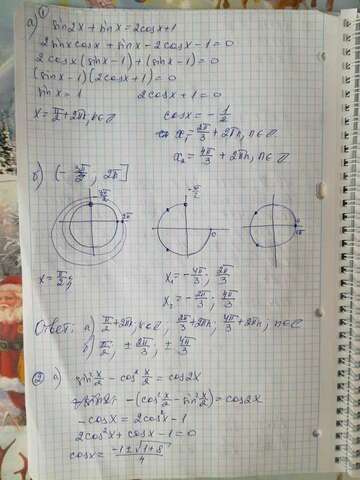 а) ① sin2x + sinx = 2cosx + 1
2sinxcosx + sinx - 2cosx - 1 = 0
2cosx(sinx - 1) + (sinx - 1) = 0
(sinx - 1)(2cosx + 1) = 0
sinx = 1    2cosx + 1 = 0
x = π/2 + 2πn, n∈Z    cosx = -1/2
x₁ = 2π/3 + 2πn, n∈Z
x₂ = 4π/3 + 2πn, n∈Z
б) (- 3π/2 ; 2π]
x = π/2;    x₁ = -4π/3 ; 2π/3
x₂ = -2π/3 ; 4π/3
Ответ: а) π/2 + 2πn, n∈Z, 2π/3 + 2πn; 4π/3 + 2πn, n∈Z
б) π/2, ± 2π/3, ± 4π/3
② а) sin² x/2 - cos² x/2 = cos2x
-(cos² x/2 - sin² x/2) = cos2x
-cosx = 2cos²x - 1
2cos²x + cosx - 1 = 0
cosx = (-1 ± √(1+8))/4